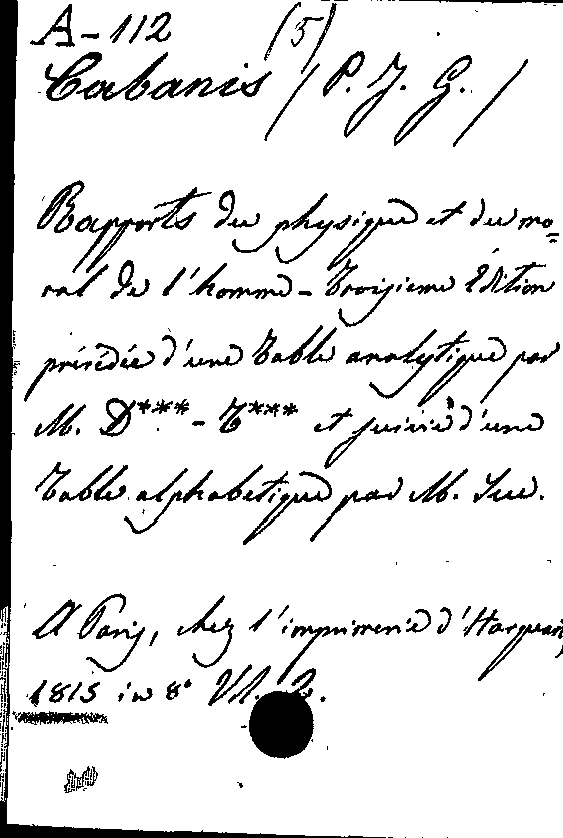 A-112 (5)
Cabanis (P. J. G.)
Rapports du physique et du mo=
ral de l'homme - Troisieme Edition
précédée d'une Table analytique par
M. D*** - T*** et suivie d'une
Table alphabetique par M. Sue.
A Paris, chez l'imprimerie d'
1815 in 8° Vl. 2.